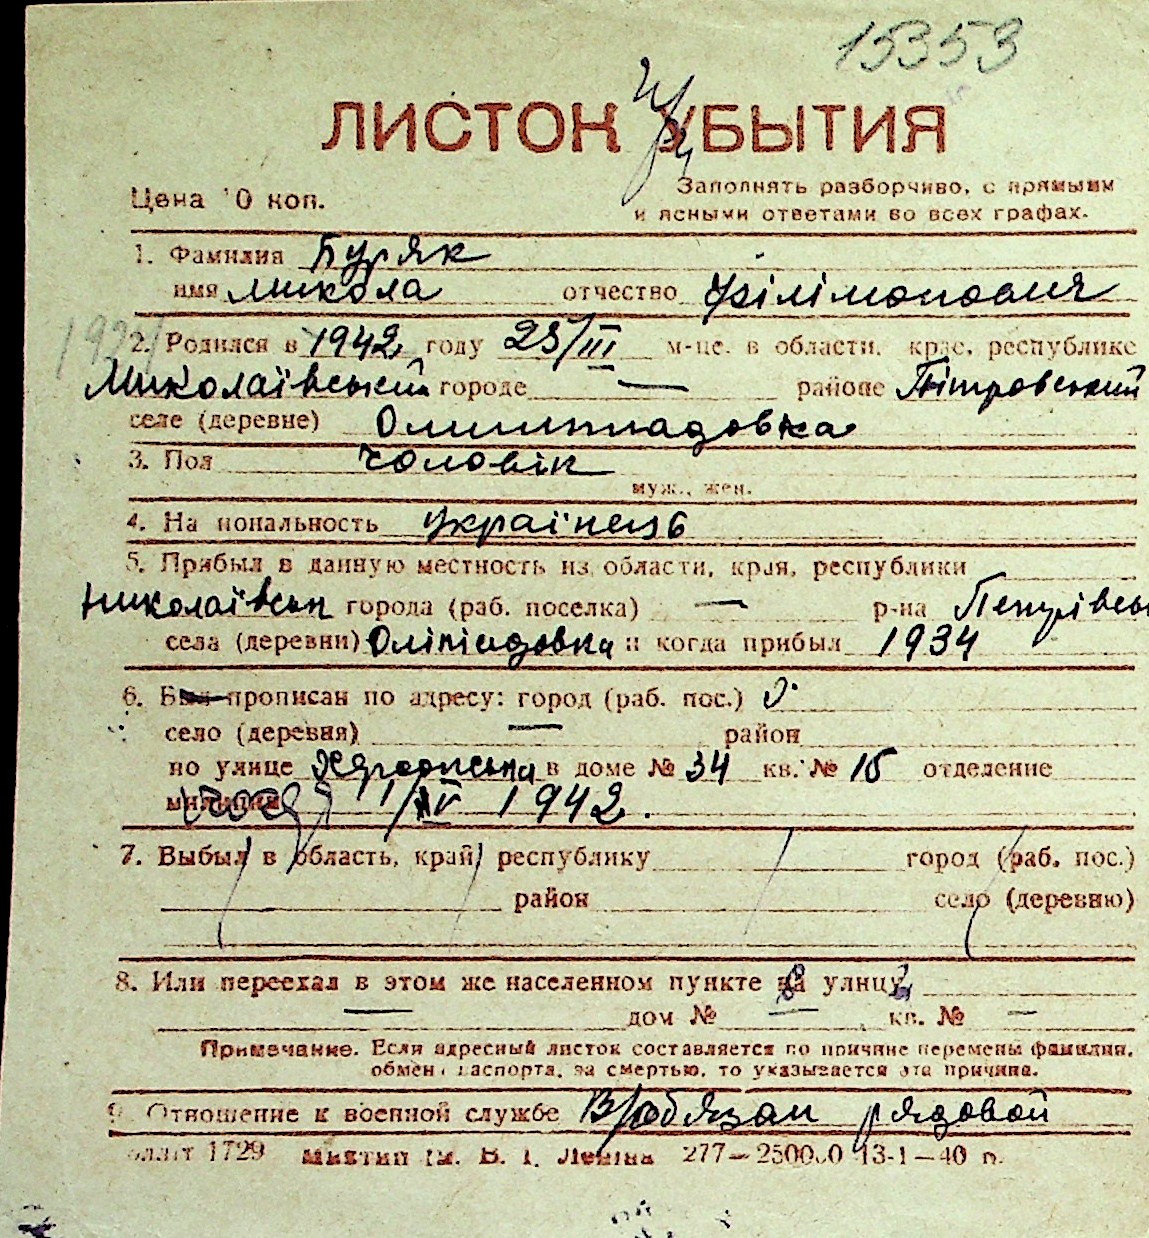 15353
ЛИСТОК УБЫТИЯ
Цена 10 коп.
Заполнять разборчиво, с прямыми
и ясными ответами во всех графах.
1. Фамилия Буряк
имя Микола отчество Філімонович
192
2. Родился в 1942 году 23/III м-це. в области, крае, республике
Миколаївській городе — районе Петровський
селе (деревне) Олимпиадовка
3. Пол чоловік
муж., жен.
4. Национальность українець
5. Прибыл в данную местность из области, края, республики
Николаївськ города (раб. поселка) — р-на
села (деревни) Оліпіадовка и когда прибыл 1934
6. Был прописан по адресу: город (раб. пос.)
село (деревня) — район
по улице Херсонська в доме № 34 кв. № 15 отделение
милиции 1/IV 1942.
7. Выбыл в область, край, республику город (раб. пос.)
район село (деревню)
8. Или переехал в этом же населенном пункте на улицу
— дом № — кв. № —
Примечание. Если адресный листок составляется по причине перемены фамилии,
обмена паспорта, за смертью, то указывается эта причина.
9. Отношение к военной службе В/обязан рядовой
1729 им. В. І. Леніна 277—250000 13-1—40 п.